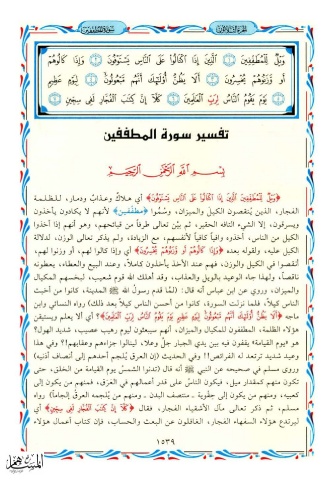 سورة المطففين
الجزء الثلاثون
وَيْلٌ لِّلْمُطَفِّفِينَ ۝ الَّذِينَ إِذَا اكْتَالُوا عَلَى النَّاسِ يَسْتَوْفُونَ ۝ وَإِذَا كَالُوهُمْ
أَو وَّزَنُوهُمْ يُخْسِرُونَ ۝ أَلَا يَظُنُّ أُولَٰئِكَ أَنَّهُم مَّبْعُوثُونَ ۝ لِيَوْمٍ عَظِيمٍ
۝ يَوْمَ يَقُومُ النَّاسُ لِرَبِّ الْعَالَمِينَ ۝ كَلَّا إِنَّ كِتَابَ الْفُجَّارِ لَفِي سِجِّينٍ ۝
تفسير سورة المطففين
بِسْمِ اللَّهِ الرَّحْمَٰنِ الرَّحِيمِ
﴿وَيْلٌ لِّلْمُطَفِّفِينَ الَّذِينَ إِذَا اكْتَالُوا عَلَى النَّاسِ يَسْتَوْفُونَ﴾ أي هلاكٌ وعذابٌ ودمار، للظلمة
الفجار، الذين ينقصون الكيل والميزان، وسُمُّوا ﴿مطففين﴾ لأنهم لا يكادون يأخذون
ويسرقون، إلا الشيء التافه الحقير، ثم بيَّن تعالى طرفاً من قبائحهم، وهو أنهم إذا أخذوا
الكيل من الناس، أخذوه وافياً كافياً لأنفسهم، مع الزيادة، ولم يذكر تعالى الوزن، لدلالة
الكيل عليه، ولقوله بعده ﴿وَإِذَا كَالُوهُمْ أَو وَّزَنُوهُمْ يُخْسِرُونَ﴾ أي وإذا كالوا لهم، أو وزنوا لهم،
أنقصوا في الكيل والوزن، فهم عند الأخذ يأخذون كاملاً، وعند البيع والعطاء، يعطونه
ناقصاً، ولهذا جاء الوعيد بالويل والعذاب، وقد أهلك الله قوم شعيب، لبخسهم المكيال
والميزان، وروي عن ابن عباس أنه قال: (لمَّا قدم رسول الله ﷺ المدينة، كانوا من أخبث
الناس كيلاً، فلما نزلت السورة، كانوا من أحسن الناس كيلاً بعد ذلك) رواه النسائي وابن
﴿أَلَا يَظُنُّ أُولَٰئِكَ أَنَّهُم مَّبْعُوثُونَ لِيَوْمٍ عَظِيمٍ يَوْمَ يَقُومُ النَّاسُ لِرَبِّ الْعَالَمِينَ﴾؟ أي ألا يعلم ويستيقن
هؤلاء الظلمة، المطففون للمكيال والميزان، أنهم سيبعثون ليوم رهيب عصيب، شديد الهول؟
هو «يوم القيامة» يقفون فيه بين يدي الجبار جلَّ وعلا، لينالوا جزاءهم وعقابهم؟! وفي هذا
وعيد شديد ترتعد له الفرائص!! وفي الحديث (إن العرق يُلجم أحدهم إلى أنصاف أذنيه)
وروى مسلم في صحيحه عن النبي ﷺ أنه قال (تدنوا الشمسُ يوم القيامة من الخلق، حتى
تكون منهم كمقدار ميل، فيكون الناسُ على قدر أعمالهم في العرق، فمنهم من يكون إلى
كعبيه، ومنهم من يكون إلى حقويه ـ منتصف البدن ـ ومنهم من يُلجمه العرق إلجاماً) رواه
مسلم، ثم ذكر تعالى مآل الأشقياء الفجار، فقال ﴿كَلَّا إِنَّ كِتَابَ الْفُجَّارِ لَفِي سِجِّينٍ﴾ أي
ليرتدع هؤلاء السفهاء الفجار، الغافلون عن البعث والحساب، فإن كتاب أعمال هؤلاء
١٥٣٩